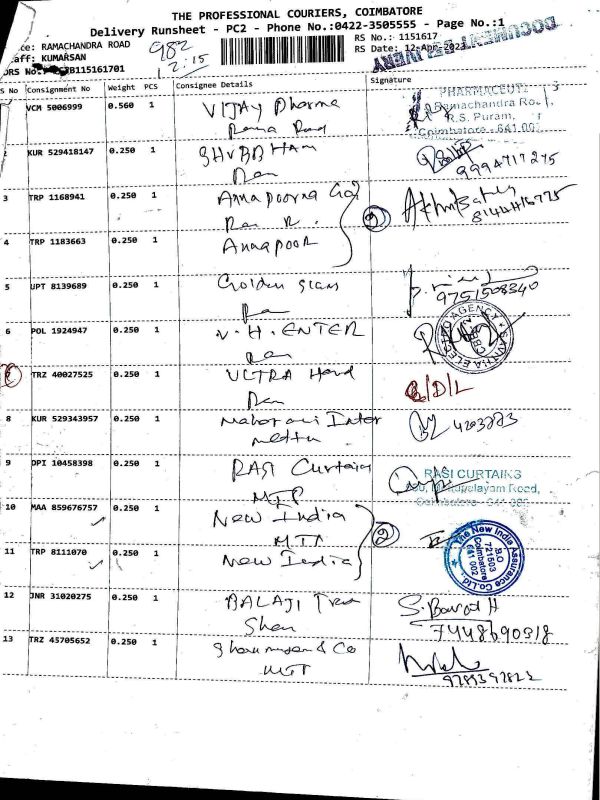 THE PROFESSIONAL COURIERS, COIMBATORE
Delivery Runsheet - PC2 - Phone No.:0422-3505555 - Page No.:1
RAMACHANDRA ROAD
KUMARSAN
982
2.15
RS No.: 1151617
RS Date: 12-Apr-2023
DOCUMENT DELIVERY
DRS No.
B115161701
S No Consignment No Weight PCS Consignee Details Signature
VCM 5006999 0.560 1 VIJAY Pharma
Rama Road
PHARMACEUTI
Ramachandra Road,
R.S. Puram,
Coimbatore - 641 002.
2 KUR 529418147 0.250 1 SHUBBHAM
Ram
9994717275
3 TRP 1168941 0.250 1 Annapoorna
Ram R.
2
8144416775
4 TRP 1183663 0.250 1 Annapoor
5 UPT 8139689 0.250 1 Golden
Ram
9751508340
6 POL 1924947 0.250 1 V.H. ENTER
Ram
AGENCY
7 TRZ 40027525 0.250 1 ULTRA Hard
Ram
D/L
8 KUR 529343957 0.250 1 Maharani Inter
mettu
4203283
9 DPI 10458398 0.250 1 RASI Curtains
MTP
RASI CURTAINS
Mettupalayam Road,
Coimbatore
10 MAA 859676757 0.250 1 New India
MTP
2
11 TRP 8111070 0.250 1 New India
The New India Assurance Co.Ltd.
B.O
721503
Coimbatore
641 002
12 JNR 31020275 0.250 1 BALAJI Tra
Shan
S. Barath
7448690818
13 TRZ 45705652 0.250 1 & Co
MTP